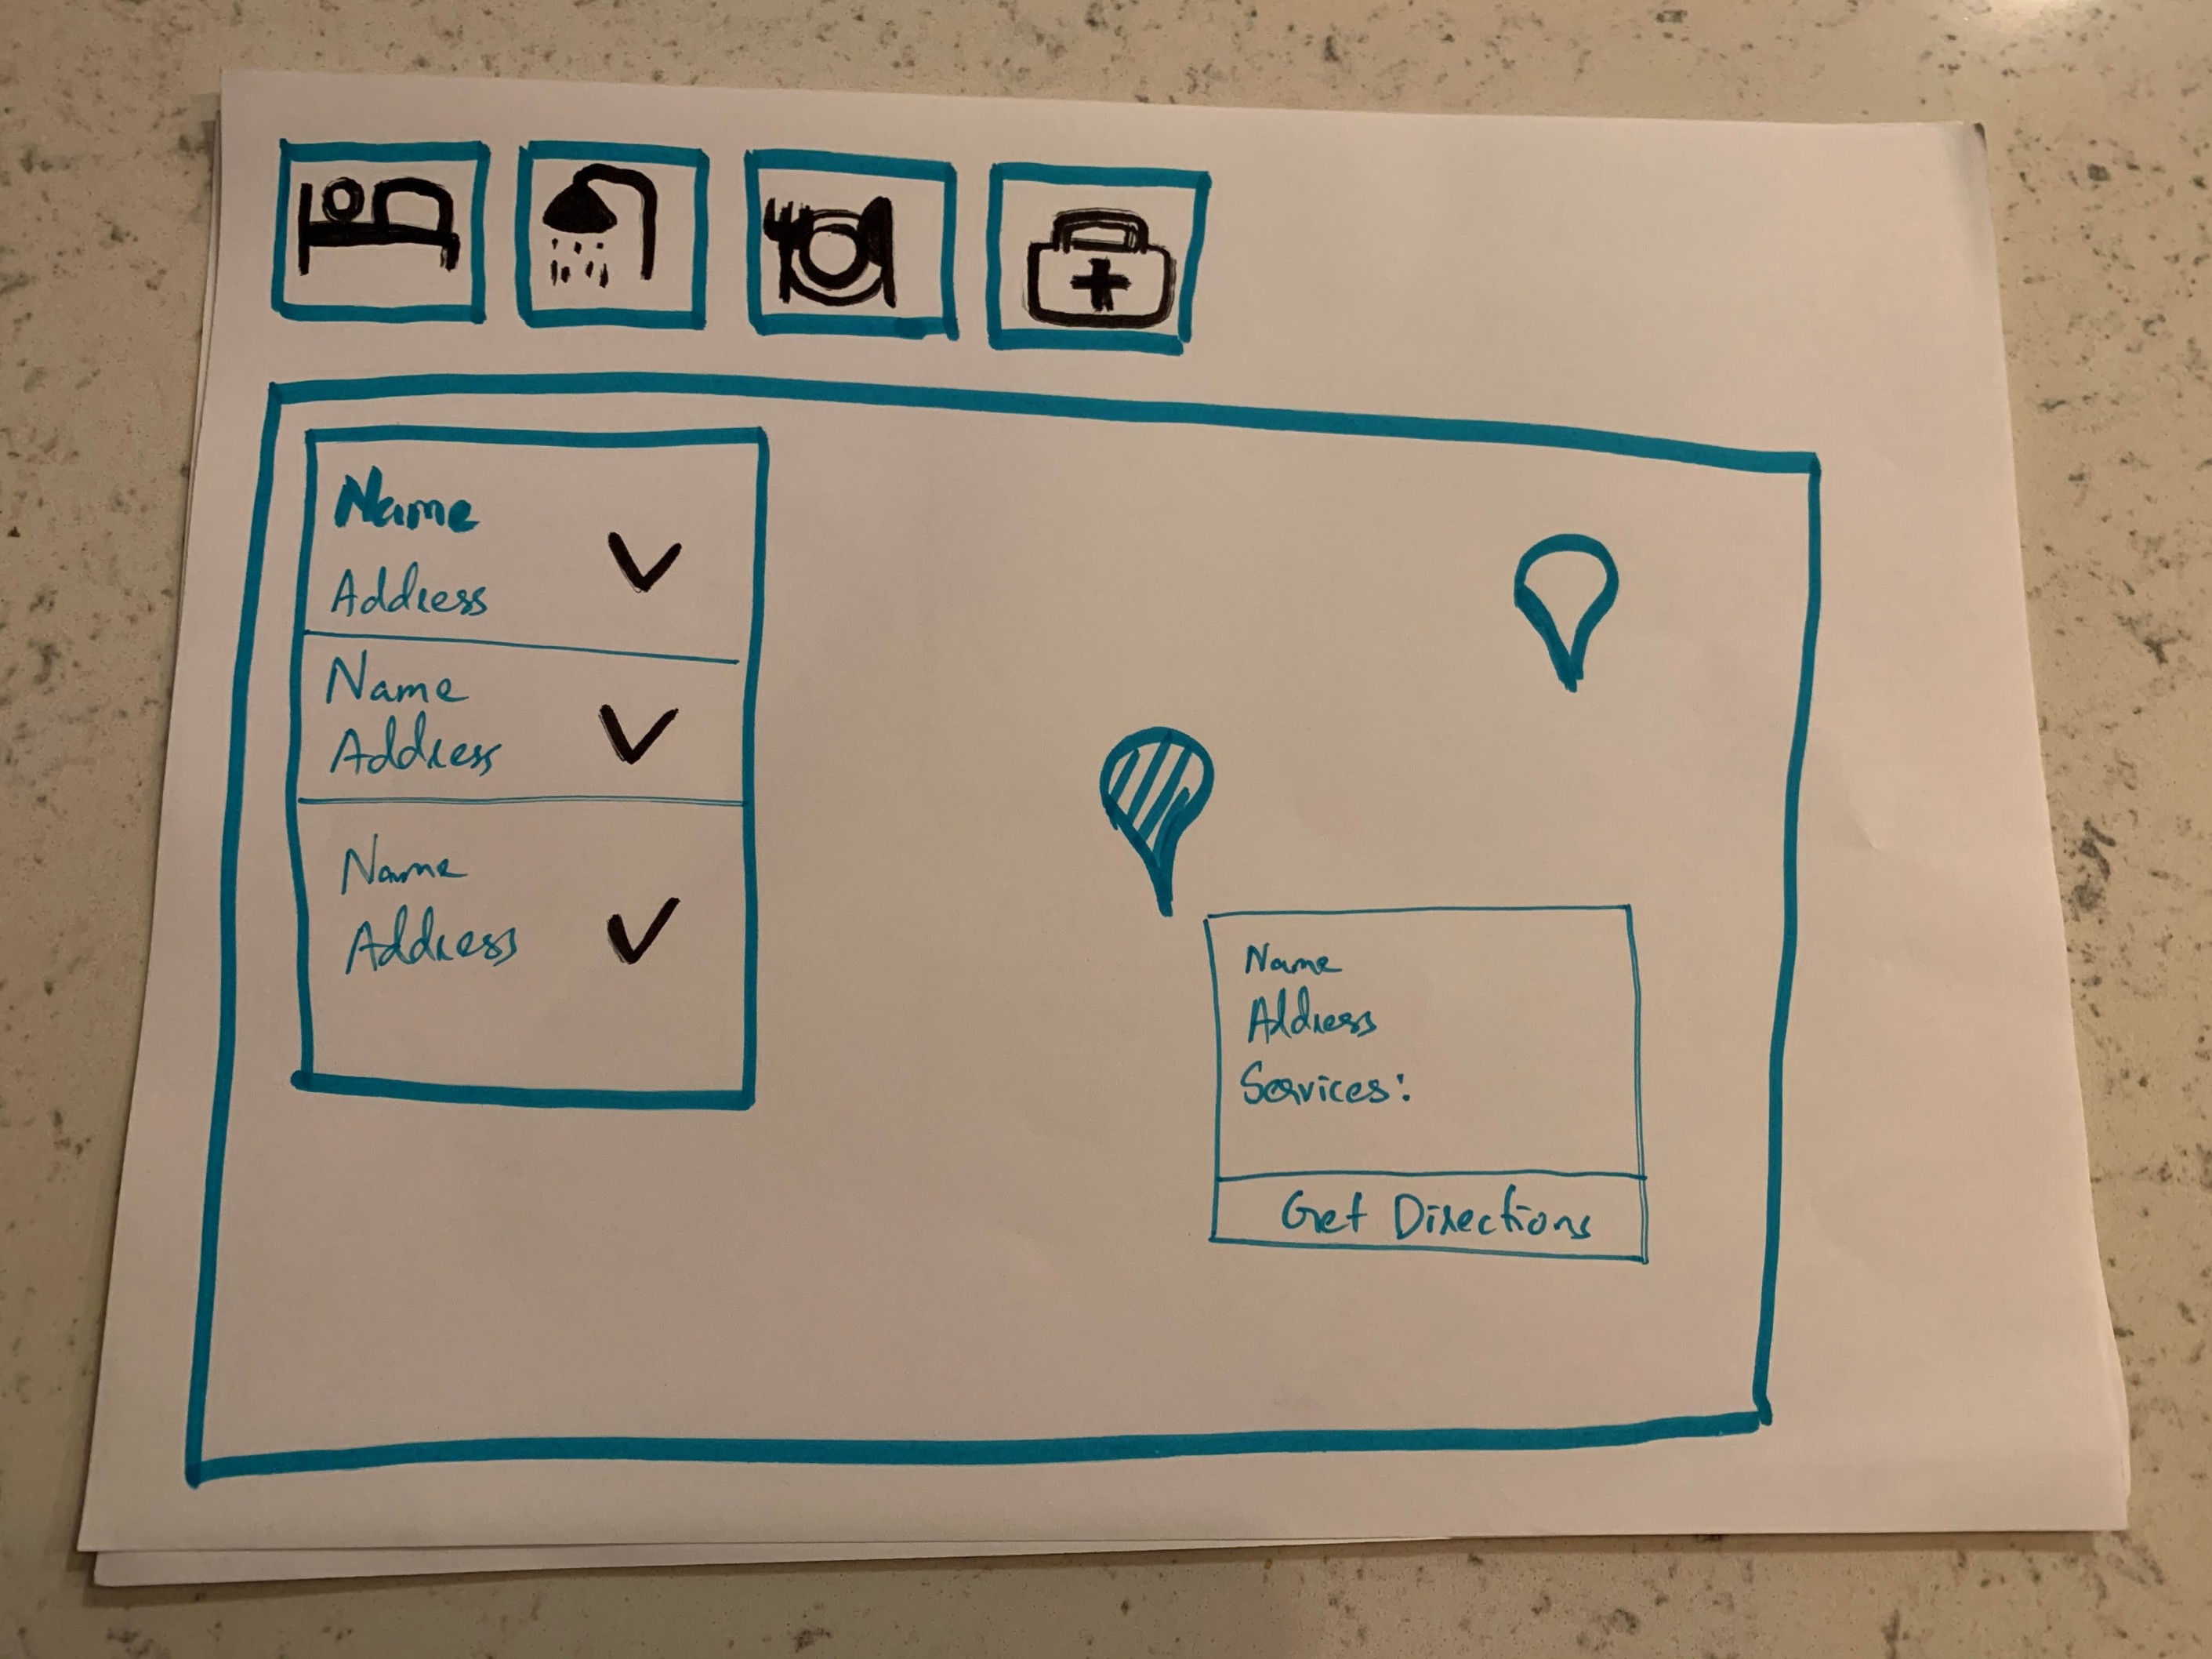 Name
Address
Name
Address
Name
Address
Name
Address
Services:
Get Directions